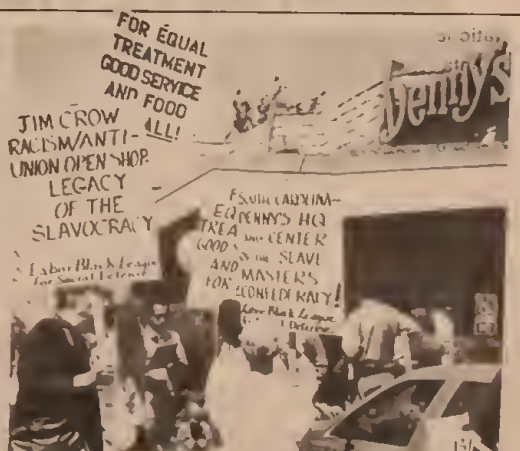 FOR EQUAL
TREATMENT
GOOD SERVICE
AND FOOD
ALL!
JIM CROW
RACISM/ANTI-
UNION OPEN SHOP
LEGACY
OF THE
SLAVOCRACY
Labor Black League
for Social Defense
SOUTH CAROLINA-
DENNY'S HQ
AND CENTER
OF THE SLAVE
MASTERS
CONFEDERACY!
Labor Black League
Defense
EQ
TREA
GOOD S
AND
FOR
Denny's